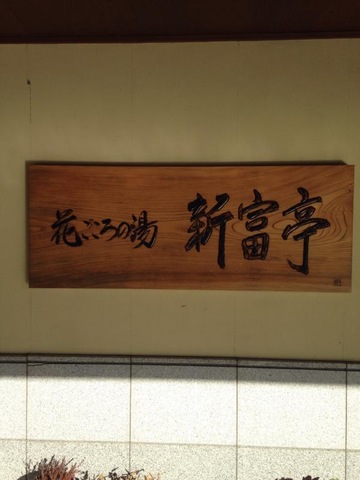 花ごころの湯 新富亭